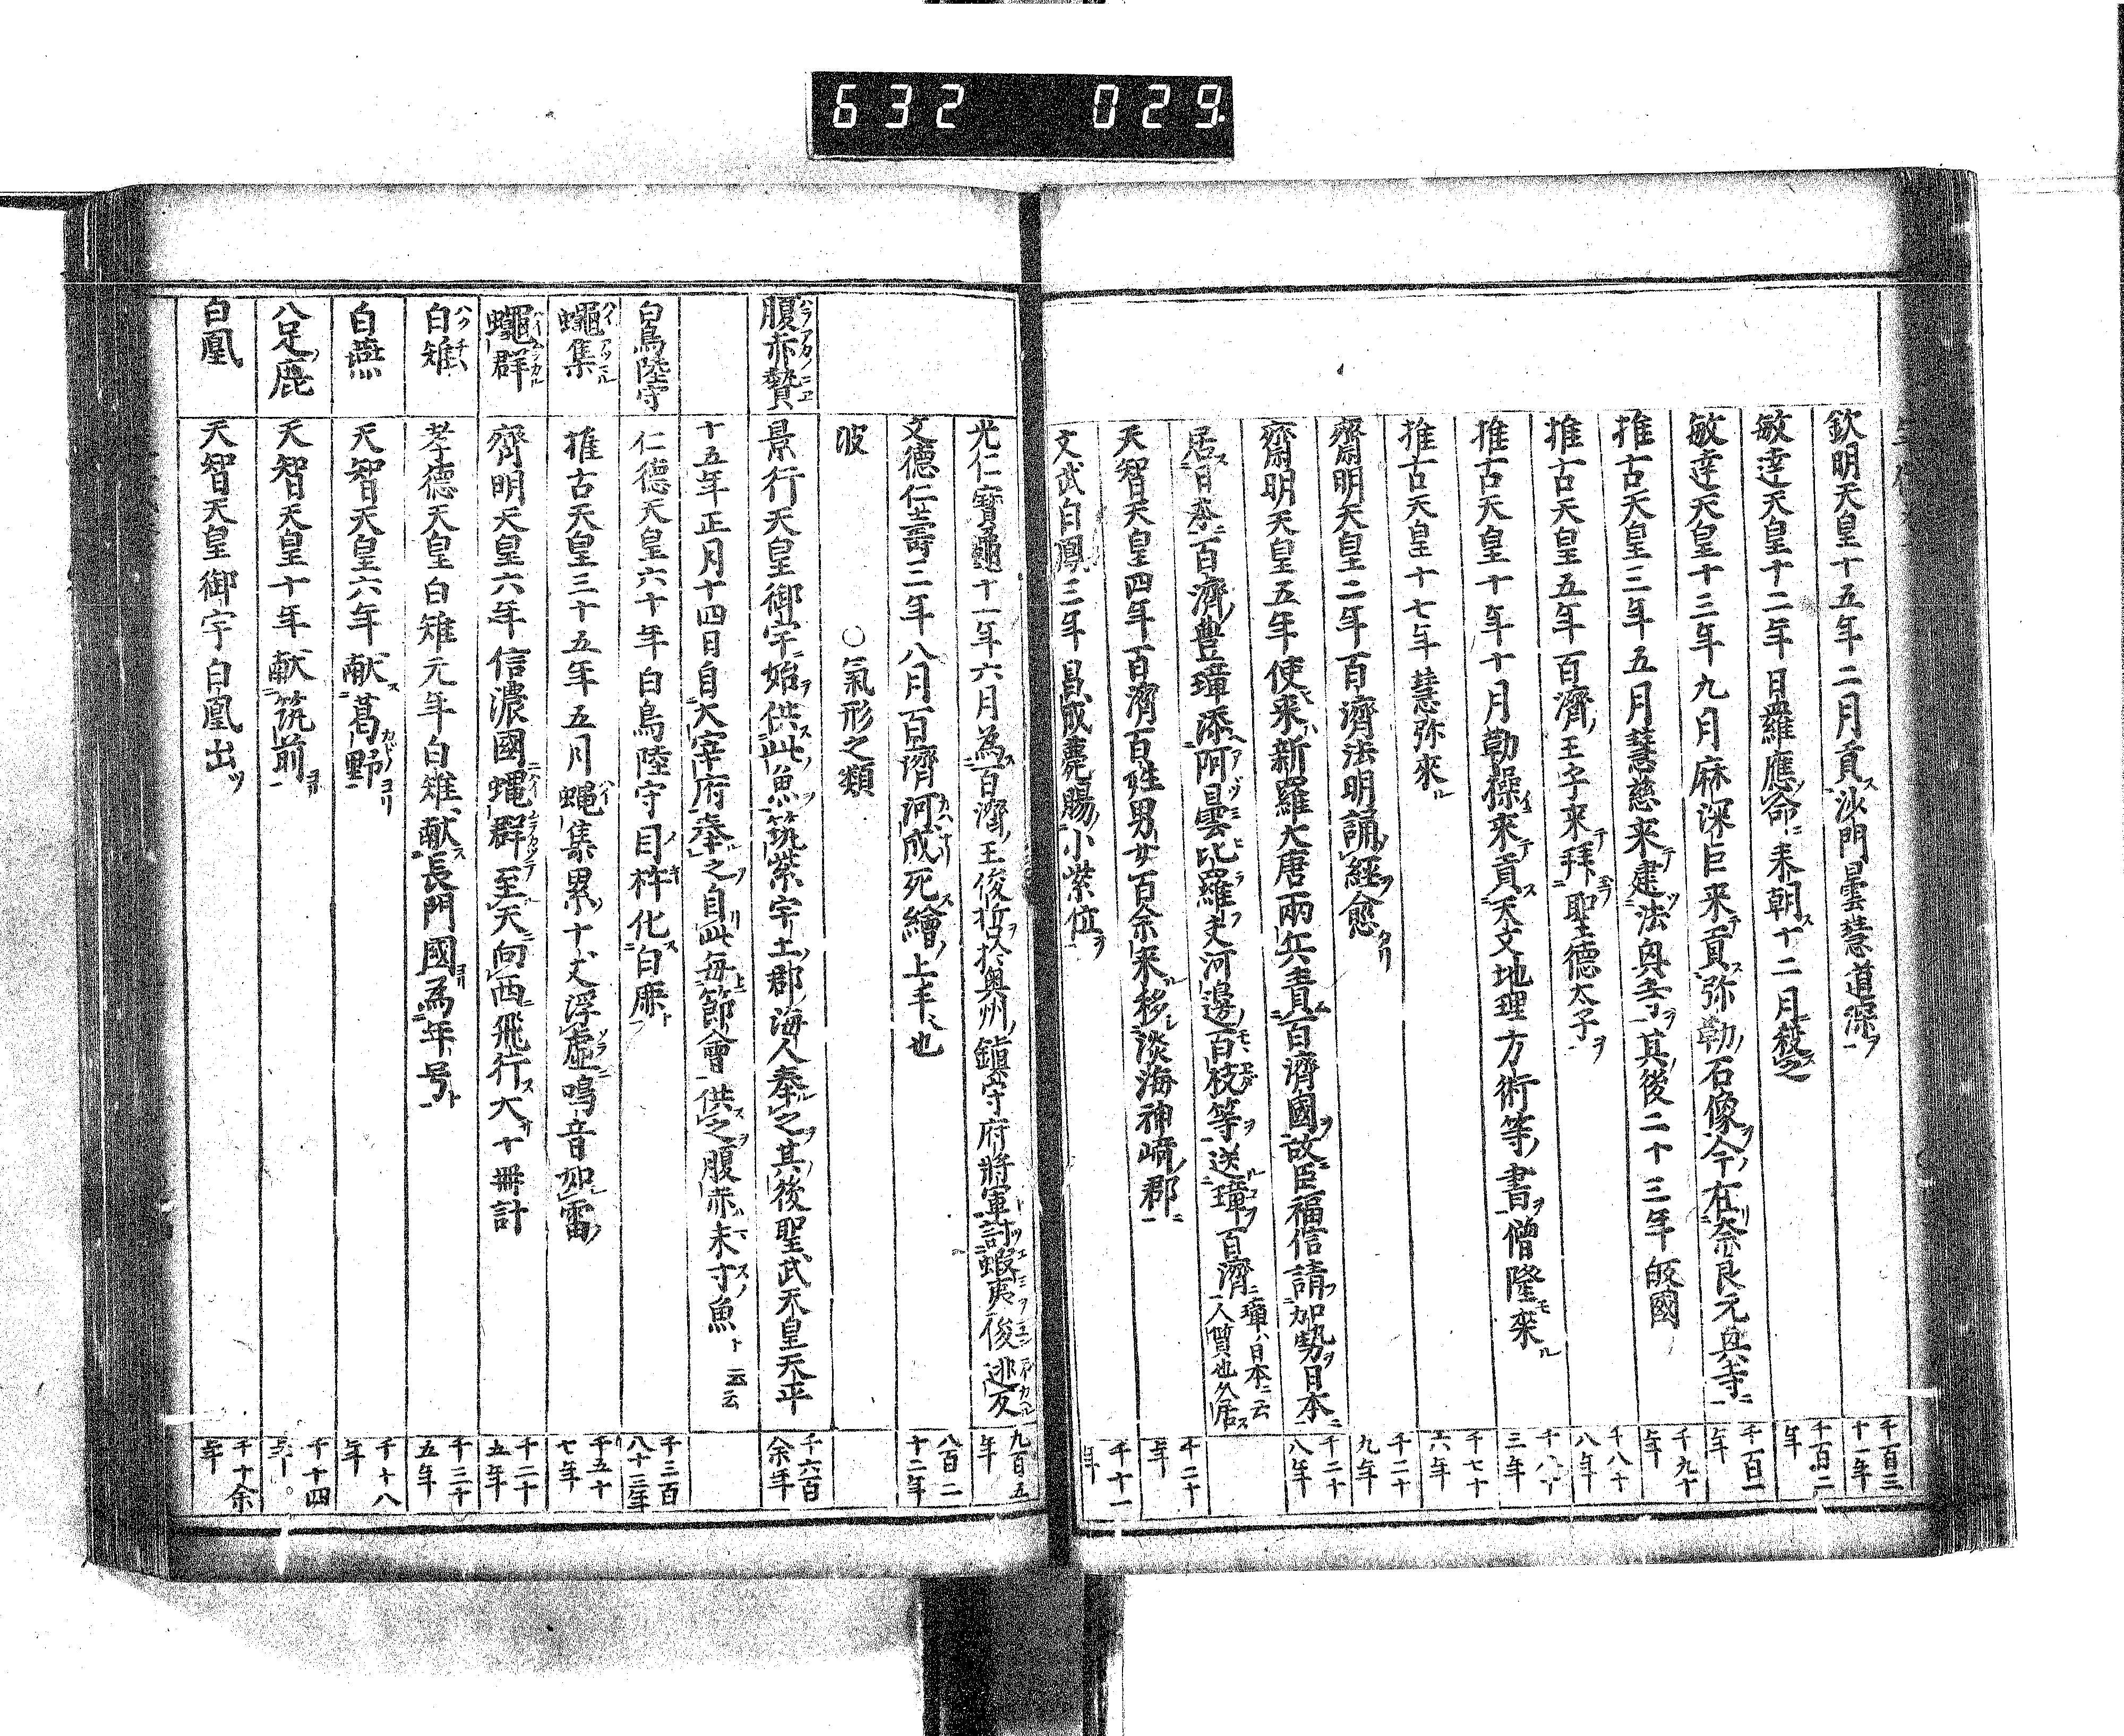 632 029
欽明天皇十五年二月貢沙門曇慧道深
千百三十一年
敏達天皇十二年日羅應命来朝十二月殺之
千百二年
敏達天皇十三年九月麻深臣来貢弥勒石像今在奈良元興寺
千百一年
推古天皇三年五月慧慈来建法興寺其後二十三年皈國
千九十年
推古天皇五年百濟王子来拜聖德太子
千八十八年
推古天皇十年十月勸操来貢天文地理方術等書僧隆来
千八十三年
推古天皇十七年慧弥來
千七十六年
齋明天皇二年百濟法明誦經愈
千二十九年
齋明天皇五年使来新羅大唐兩兵責百濟國故臣福信請加勢日本
千二十八年
居日本百濟豊璋添阿曇比羅夫河邊百枝等送璋百濟
璋ハ日本ニ云
人質也久居ス
天智天皇四年百濟百姓男女百余来移淡海神﨑郡
千二十年
文武白鳳三年昌成薨賜小紫位
千十一年
光仁寶龜十一年六月為百濟王俊哲於奥州鎮守府將軍討蝦夷俊逃反
九百五年
文德仁壽二年八月百濟河成死繪上手也
八百二十二年
波 ○氣形之類
腹赤贄
景行天皇御宇始供此魚筑紫宇土郡海人奉之其後聖武天皇天平
千六百余年
十五年正月十四日自大宰府奉之自此毎節會供之腹赤末寸魚ト云云
白鳥陸守
仁德天皇六十年白鳥陸守目杵化白鹿
千三百八十三年
蠅集
推古天皇三十五年五月蠅集累十丈浮虚鳴音如雷
千五十七年
蠅群
齊明天皇六年信濃國蠅群至天向西飛行大十冊計
千二十五年
白雉
孝德天皇白雉元年白雉献長門國為年号
千三十五年
白燕
天智天皇六年献葛野
千十八年
八足鹿
天智天皇十年献筑前
千十四年
白凰
天智天皇御宇白凰出
千十余年